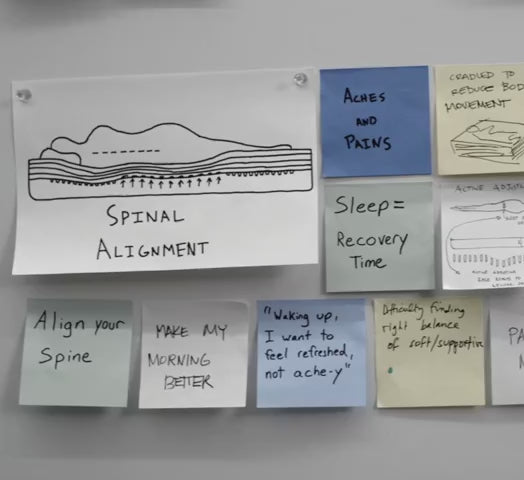 SPINAL
ALIGNMENT
ACHES
AND
PAINS
CRADLED TO
REDUCE BOD
MOVEMENT
Sleep=
Recovery
Time
ACTIVE ADJUST
Align your
Spine
MAKE MY
MORNING
BETTER
"Waking up,
I want to
feel refreshed,
not ache-y"
Difficulty finding
right balance
of soft/supportive
PA
M